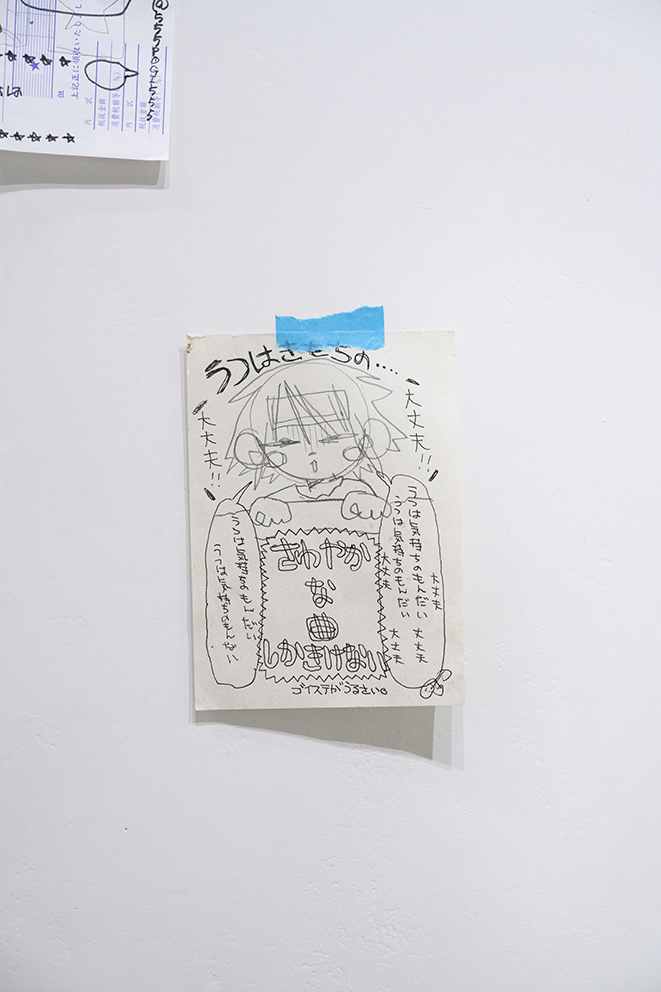 @5555PGS7555
上記正に領収いたしました
但
内 訳
税抜金額
消費税額等( %)
内 訳
税抜金額
消費税額等( %)
うつはきもちの…..
大丈夫!!
大丈夫!!
うつは気持ちのもんだい
うつは気持ちのもんだい
大丈夫
大丈夫
大丈夫
大丈夫
うつは気持ちのもんだい
うつは気持ちのもんだい
さわやか
な
曲
しかきけない
ゴイステがうるさい。